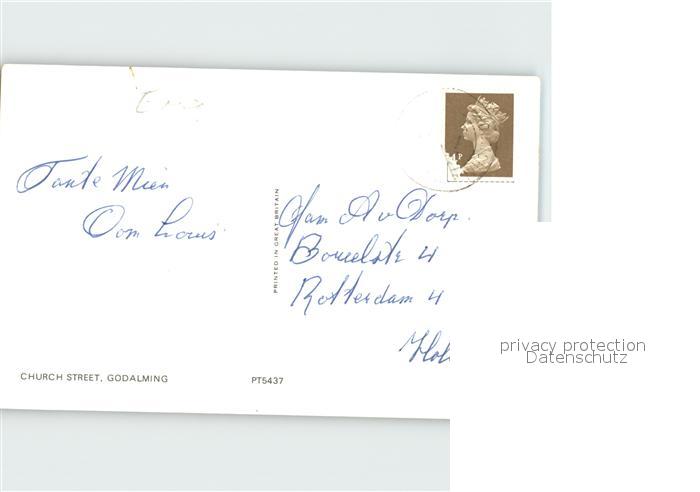 Tante Mien
Oom Louis
PRINTED IN GREAT BRITAIN
Fam A v Dorp.
Rotterdam 4
CHURCH STREET, GODALMING
PT5437
privacy protection
Datenschutz